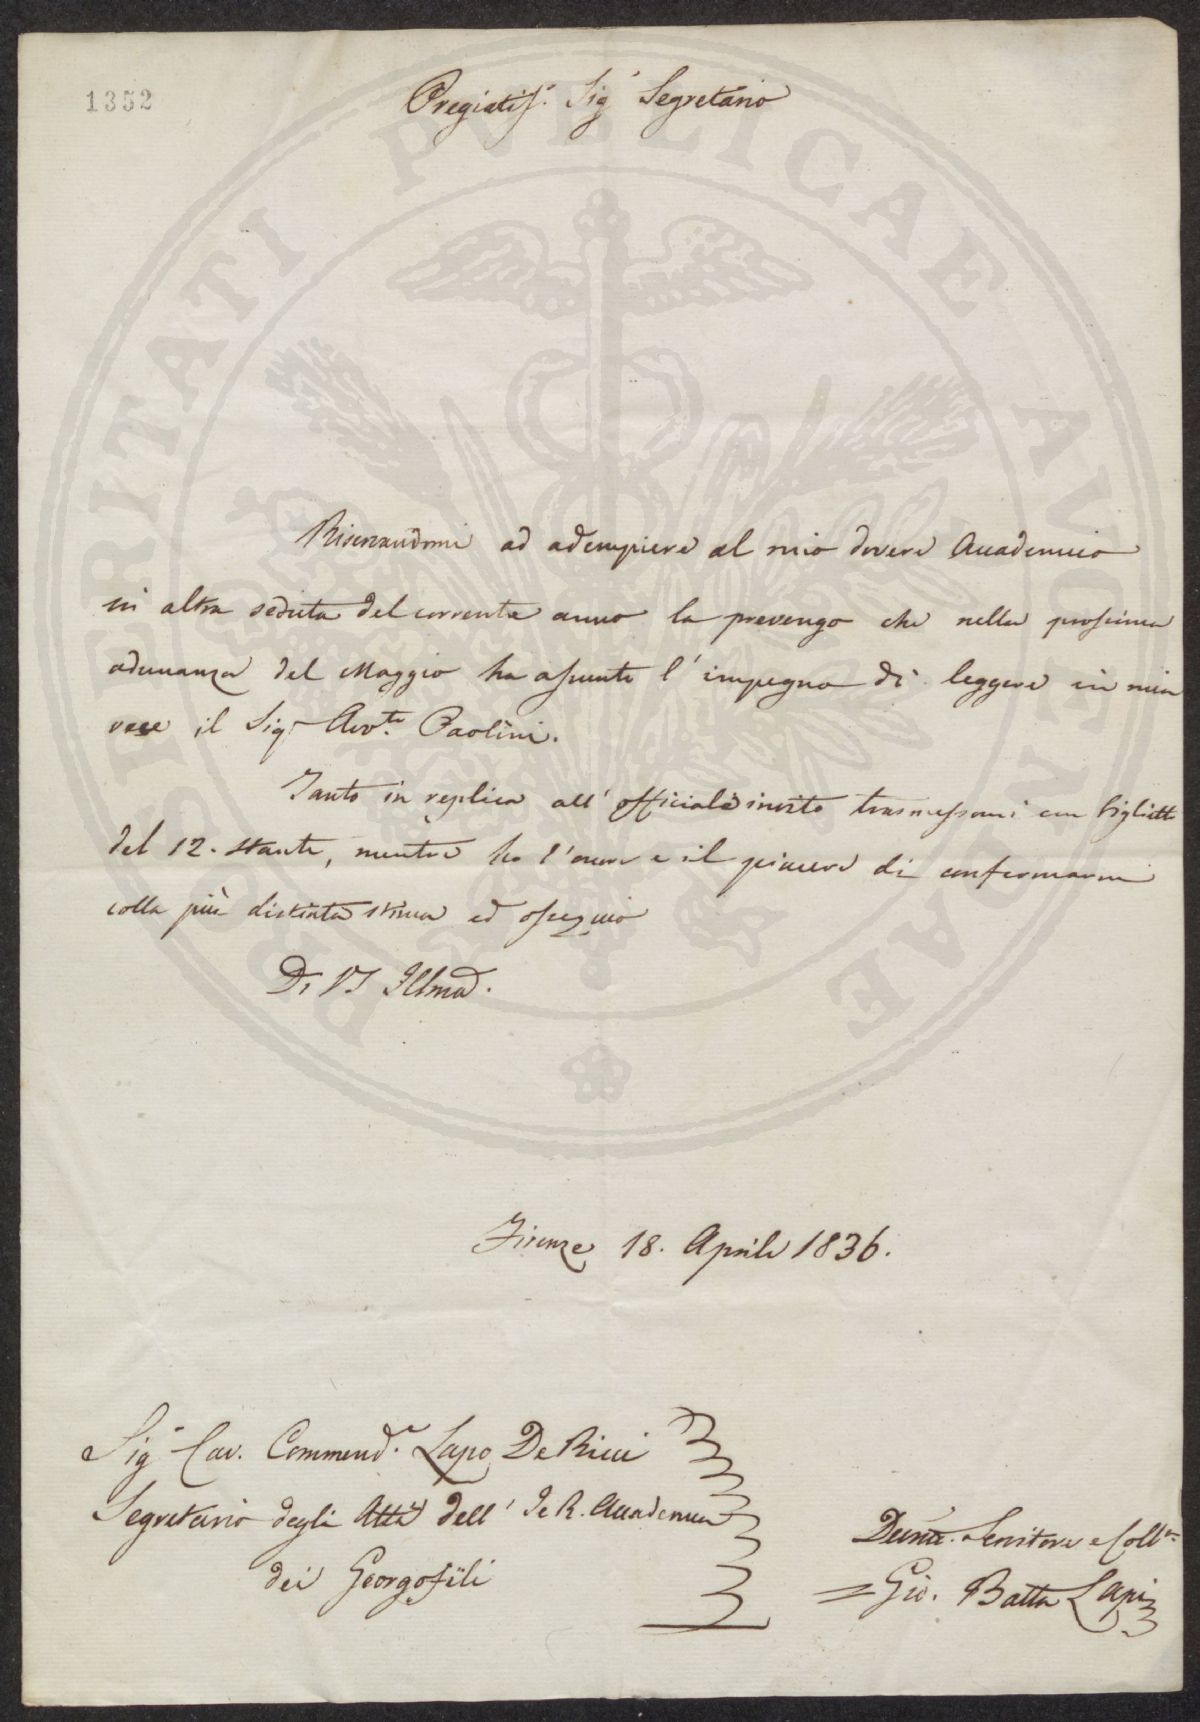 1352
Pregiatis.º Sig.r Segretario
Riserzandomi ad adempiere al mio dovere Accademico
in altra seduta del corrente anno la prevengo che nella prossima
adunanza del Maggio ha assunto l'impegno di leggere in mia
vece il Sig.r Avv.to Paolini.
Tanto in replica all'officiale invito trasmessomi con biglietto
del 12. stante, mentre ho l'onore e il piacere di confermarmi
colla più distinta stima ed ossequio
Di VS Illma.
Firenze 18. Aprile 1836.
Sig.r Cav. Commend.r Lapo De Ricci
Segretario degli Atti dell' I e R. Accademia
dei Georgofili
Servitore e Coll.
Gio. Batta Lapi
PROSPERITATI PVBLICAE AVGENDAE